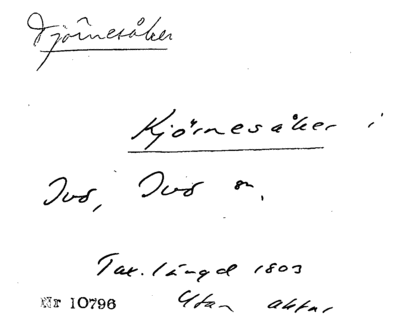 Tjörnesåker
Kjörnesåker i
Ivö, Ivö sn.
Tax. längd 1803
Nr 10796 Utan aktnr